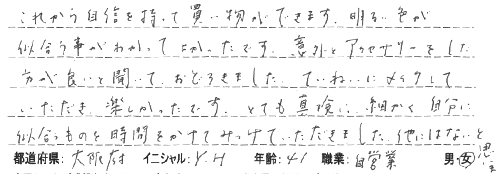 これから自信を持って買い物ができます。明るい色が
似合う事がわかってよかったです。意外とアクセサリーをした
方が良いと聞いて、おどろきました。ていねいにメイクして
いただき、楽しかったです。とても真検に、細かく自分に
似合うものを時間をかけてみつけていただきました。他にはないと
思います
都道府県: 大阪府 イニシャル: Y.H 年齢: 41 職業: 自営業 男・女